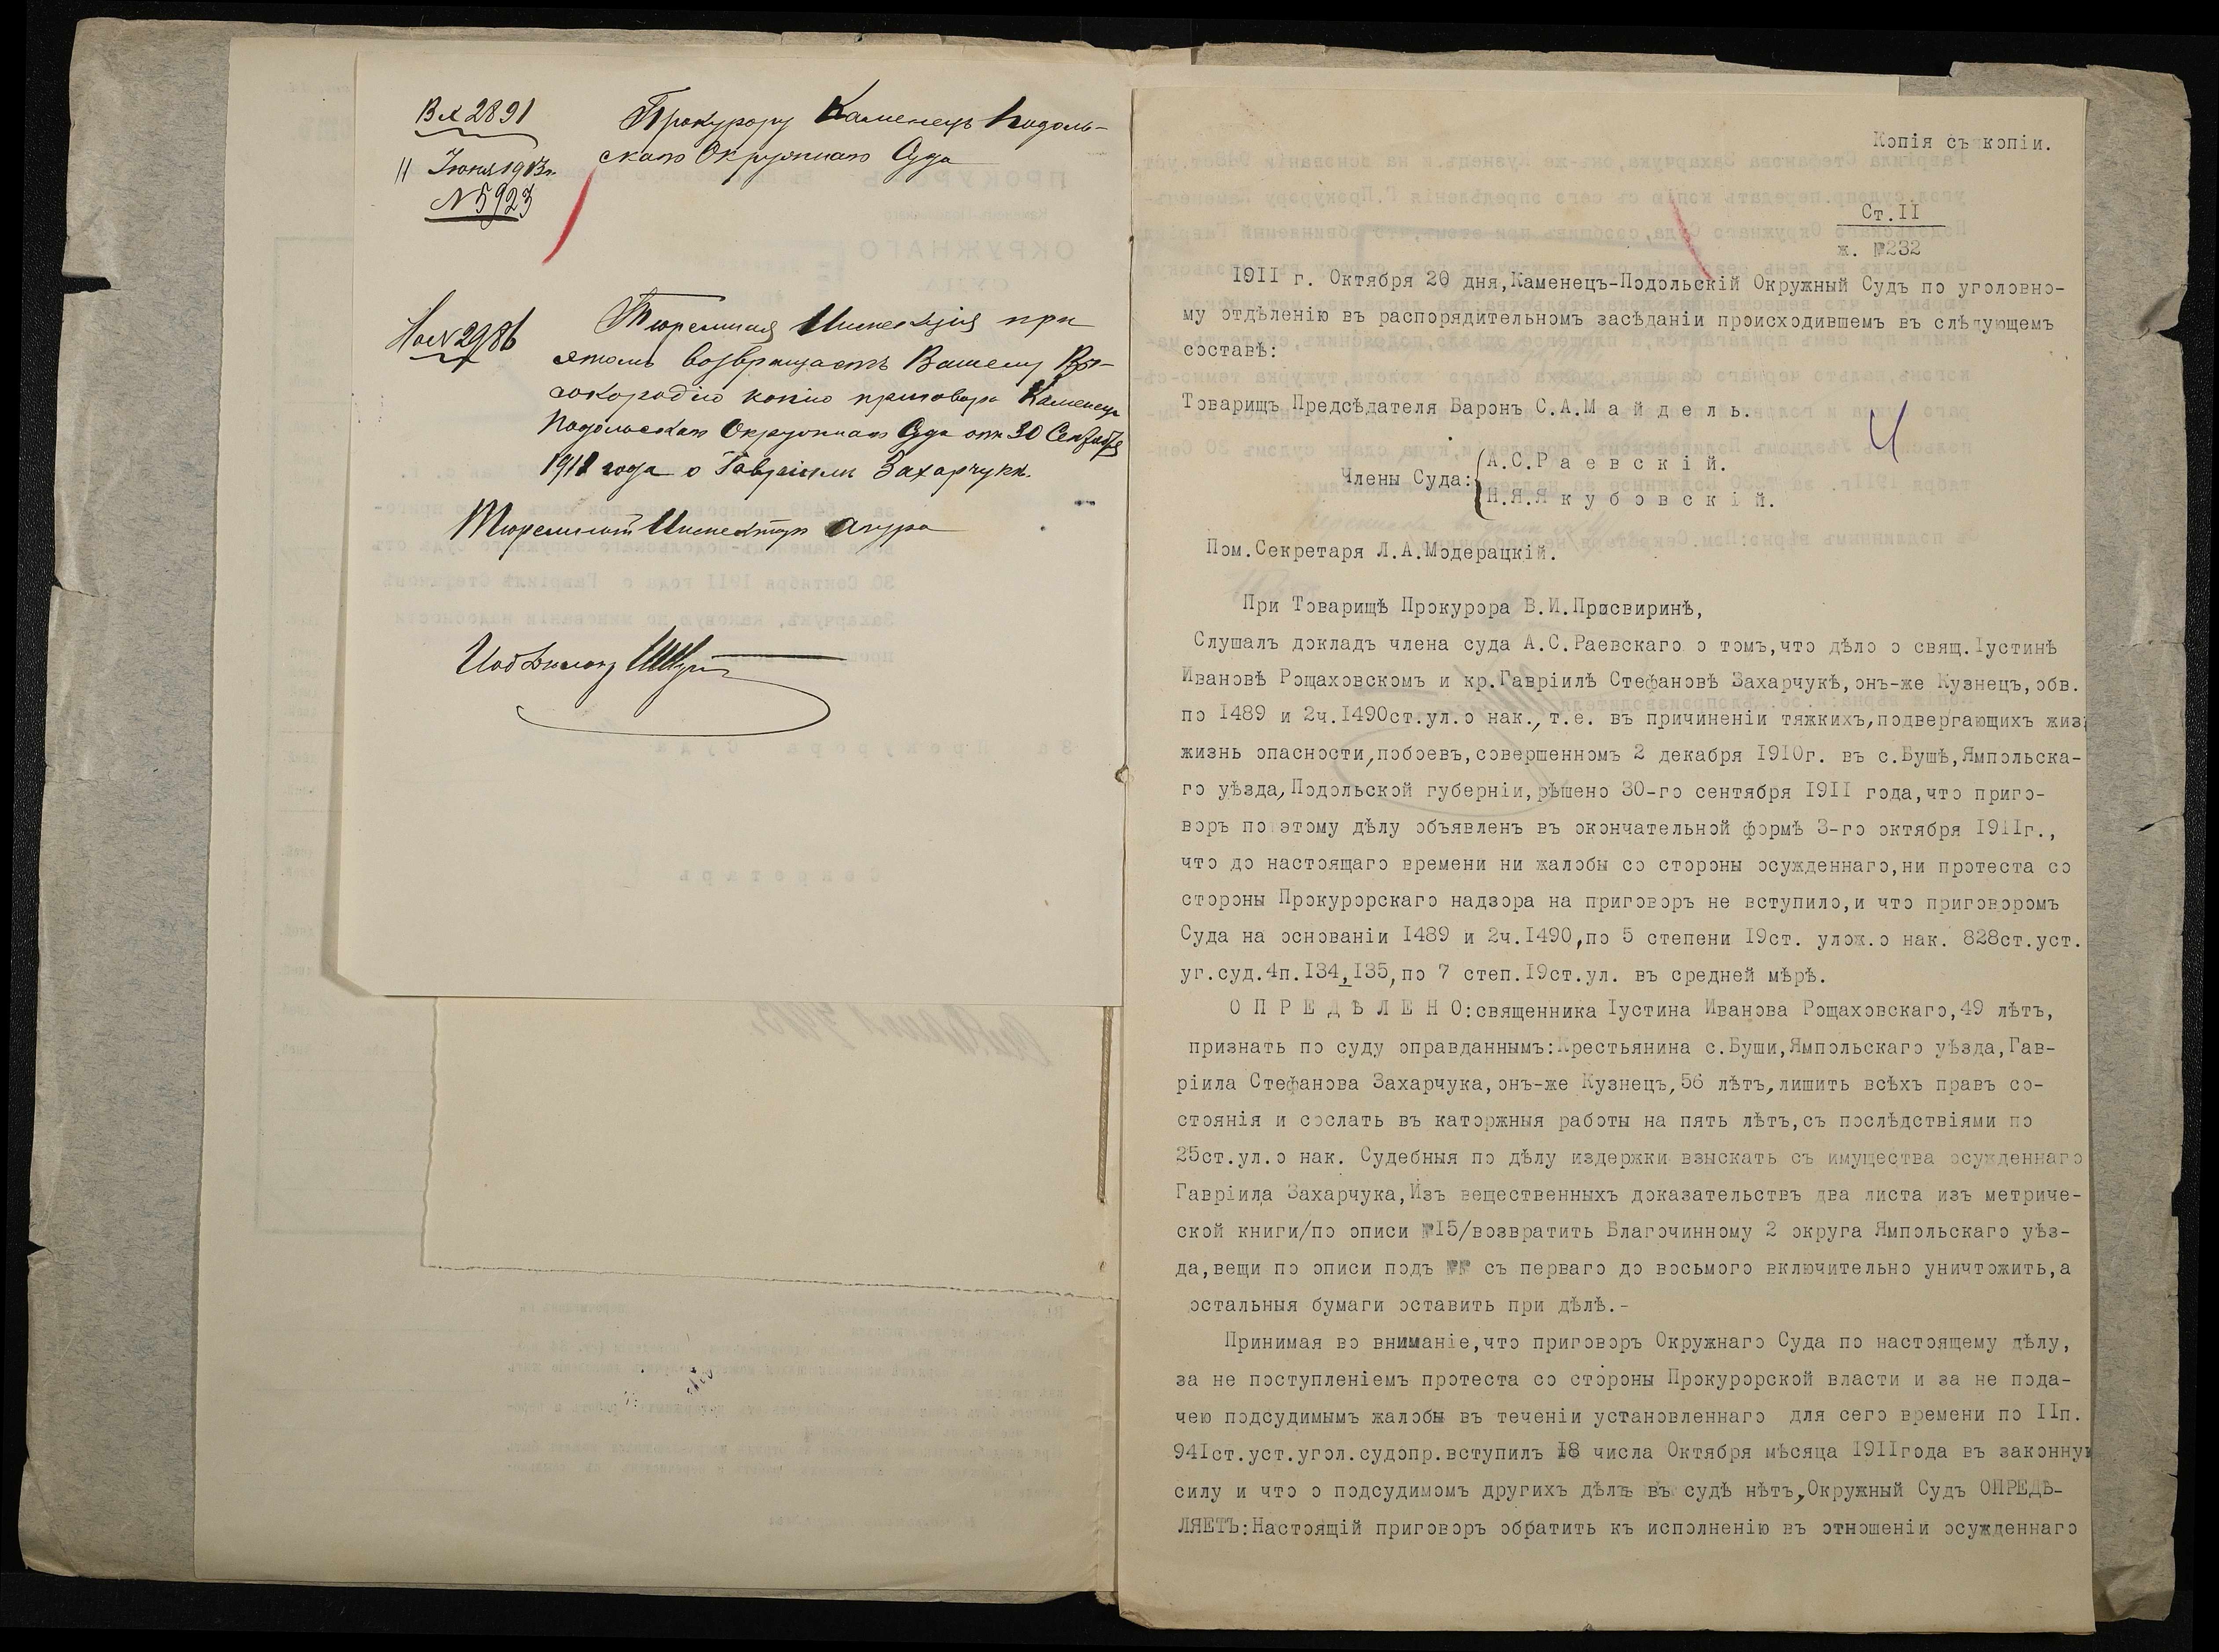 Вх 2891
11 Июня 1913г.
№ 5923
Прокурору Каменецъ Подоль-
скаго Окружнаго Суда
На № 2986
Тюремная Инспекція при
этомъ возвращаетъ Вашему Вы-
сокородію копію приговора Каменецъ
Подольскаго Окружнаго Суда отъ 30 Сентября
1911 года о Гавріилѣ Захарчукѣ.
Тюремный Инспекторъ
Копія съ копіи.
Ст.II
ж. №232
I9II г. Октября 20 дня,Каменецъ-Подольскій Окружный Судъ по уголовно-
му отдѣленію въ распорядительномъ засѣданіи происходившемъ въ слѣдующемъ
составѣ:
Товарищъ Предсѣдателя Баронъ С.А.М а й д е л ь.
Члены Суда:
А.С.Р а е в с к і й.
Н.Я.Я к у б о в с к і й.
Пом.Секретаря Л.А.Модерацкій.
При Товарищѣ Прокурора В.И.Просвиринѣ,
Слушалъ докладъ члена суда А.С.Раевскаго о томъ,что дѣло о свящ.Іустинѣ
Ивановѣ Рощаховскомъ и кр.Гавріилѣ Стефановѣ Захарчукѣ,онъ-же Кузнецъ,обв.
по I489 и 2ч.I490ст.ул.о нак.,т.е. въ причиненіи тяжкихъ,подвергающихъ жиз
жизнь опасности,побоевъ,совершенномъ 2 декабря I9I0г. въ с.Бушѣ,Ямпольска-
го уѣзда,Подольской губерніи,рѣшено 30-го сентября I9II года,что приго-
воръ по этому дѣлу объявленъ въ окончательной формѣ 3-го октября I9IIг.,
что до настоящаго времени ни жалобы со стороны осужденнаго,ни протеста со
стороны Прокурорскаго надзора на приговоръ не вступило,и что приговоромъ
Суда на основаніи I489 и 2ч.I490,по 5 степени I9ст. улож.о нак. 828ст.уст.
уг.суд.4п.I34,I35,по 7 степ.I9ст.ул. въ средней мѣрѣ.
О П Р Е Д Ѣ Л Е Н О:священника Іустина Иванова Рощаховскаго,49 лѣтъ,
признать по суду оправданнымъ:Крестьянина с.Буши,Ямпольскаго уѣзда,Гав-
ріила Стефанова Захарчука,онъ-же Кузнецъ,56 лѣтъ,лишить всѣхъ правъ со-
стоянія и сослать въ каторжныя работы на пять лѣтъ,съ послѣдствіями по
25ст.ул.о нак. Судебныя по дѣлу издержки взыскать съ имущества осужденнаго
Гавріила Захарчука,Изъ вещественныхъ доказательствъ два листа изъ метриче-
ской книги/по описи №I5/возвратить Благочинному 2 округа Ямпольскаго уѣз-
да,вещи по описи подъ №№ съ перваго до восьмого включительно уничтожить,а
остальныя бумаги оставить при дѣлѣ.-
Принимая во вниманіе,что приговоръ Окружнаго Суда по настоящему дѣлу,
за не поступленіемъ протеста со стороны Прокурорской власти и за не пода-
чею подсудимымъ жалобы въ теченіи установленнаго для сего времени по IIп.
94Iст.уст.угол.судопр.вступилъ I8 числа Октября мѣсяца I9IIгода въ законную
силу и что о подсудимомъ другихъ дѣлъ въ судѣ нѣтъ,Окружный Судъ ОПРЕДѢ-
ЛЯЕТЪ:Настоящій приговоръ обратить къ исполненію въ отношеніи осужденнаго